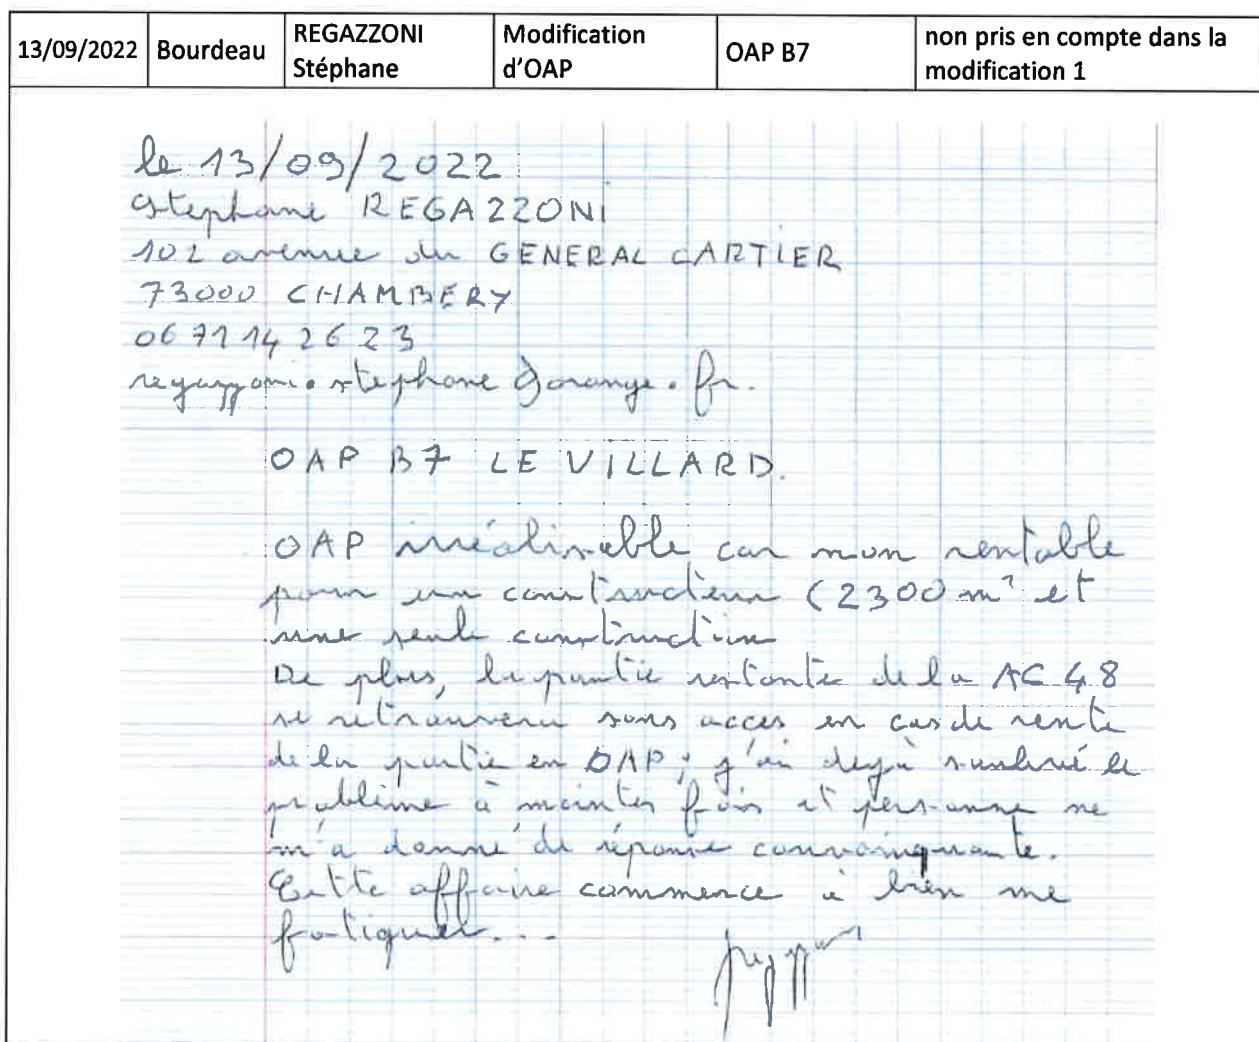 13/09/2022 Bourdeau REGAZZONI Stéphane Modification d'OAP OAP B7 non pris en compte dans la modification 1
le 13/09/2022
Stephane REGAZZONI
102 avenue du GENERAL CARTIER
73000 CHAMBERY
06 71 14 26 23
regazzoni.stephane@orange.fr.
OAP B7 LE VILLARD.
OAP irréalisable car non rentable
pour un constructeur (2300 m² et
une seule construction
De plus, la partie restante de la AC 48
se retrouvera sans acces en cas de vente
de la partie en OAP ; j'ai dejà soulevé le
problème à maintes fois et personne ne
m'a donné de réponse convainquante.
Cette affaire commence à bien me
fatiguer...